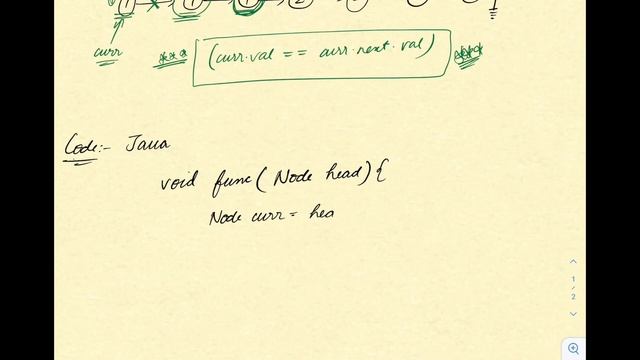 1 1 1 2
curr
*** (curr.val == curr.next.val) ***
Code:- Java
void func(Node head){
Node curr = hea
1
/
2